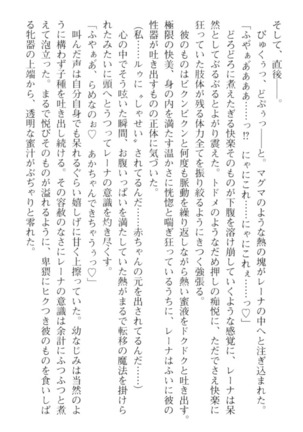 そして、直後――
びゅくぅっ、どぷぅっ――と、マグマのような熱の塊がレーナの中へと注ぎ込まれた。
「ふやぁあああああ――っ!? にゃにこれ……にゃにこれぇ――っ♡」
どろどろに煮えたぎる快楽そのものが下腹を溶け崩していくような感覚に、レーナは呆
然としてぶるぶるとよがり震えた。トドメのようなだめ押しの痴悦に、ただでさえ快楽に
狂っていた肢体が残る体力全てを振り絞るようにきつく強張る。
彼のものはビクンビクンと何度も脈動を繰り返しながら熱い蜜液をドクドクと吐き出す。
極限の快美、身の内を満たす温かさに恍惚と喘ぎ狂っているうちに、レーナはふいに彼の
性器が吐き出すものの正体に気づいた。
(私……ルゥに、しゃせい……されてるんだ……赤ちゃんの元を出されてるんだ……)
心の中でそう呟いた瞬間、お腹いっぱいを満たしていた熱がまるで転移の魔法を掛けら
れたみたいに頭へとうつってレーナの意識を灼き尽くす。
「ふやぁあ、らめなのぉ♡ あかちゃんできちゃううっ♡」
叫んだ声は自分自身でも呆れるくらい嬉しげに甘く上擦っていた。幼なじみは当然のよ
うに構わず子種を吐き出し続ける。その容赦のなさにレーナの意識は余計にふつふつと煮
えて泡立った。まるで悦びそのものが溢れるように、卑猥にヒクつき彼のものを食いしば
る牝器の上端から、透明な蜜汁がぷぢゃりと零れた。